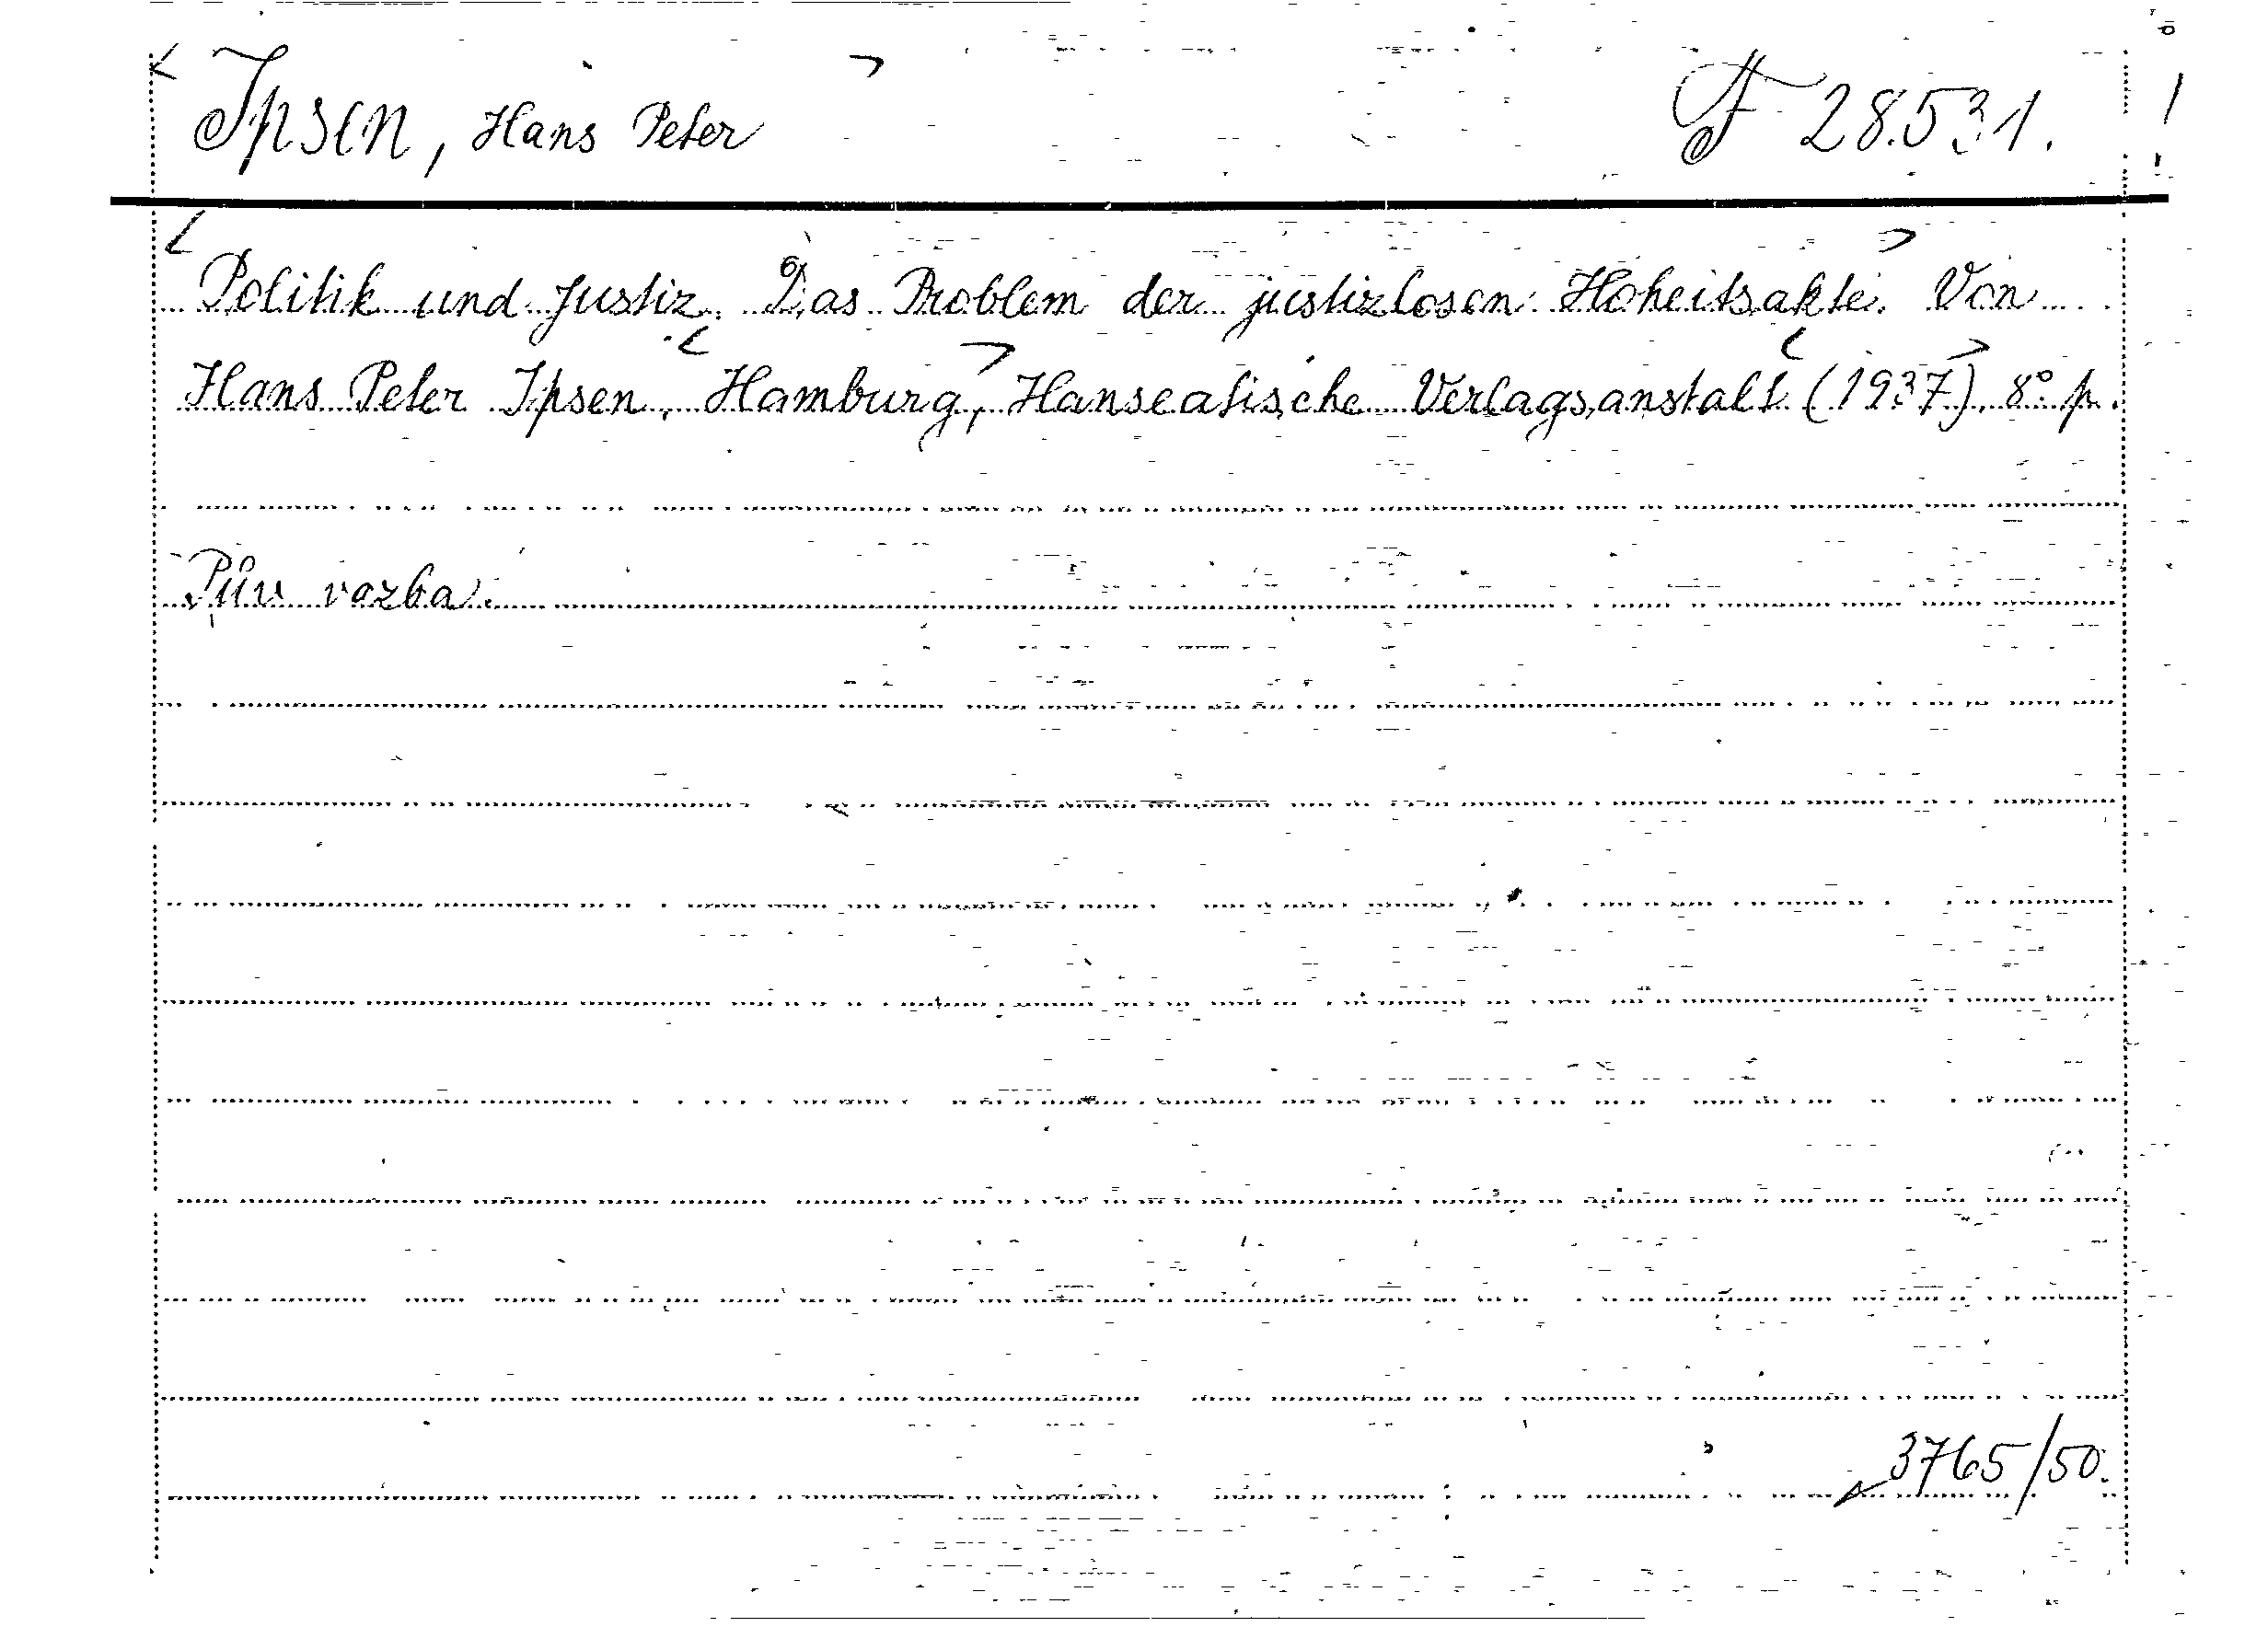 Ipsen, Hans Peter F 28.531.
Politik und Justiz. Das Problem der justizlosen Hoheitsakte. Von
Hans Peter Ipsen, Hamburg, Hanseatische Verlagsanstalt (1937). 8° p.
Pův vazba.
3765/50.